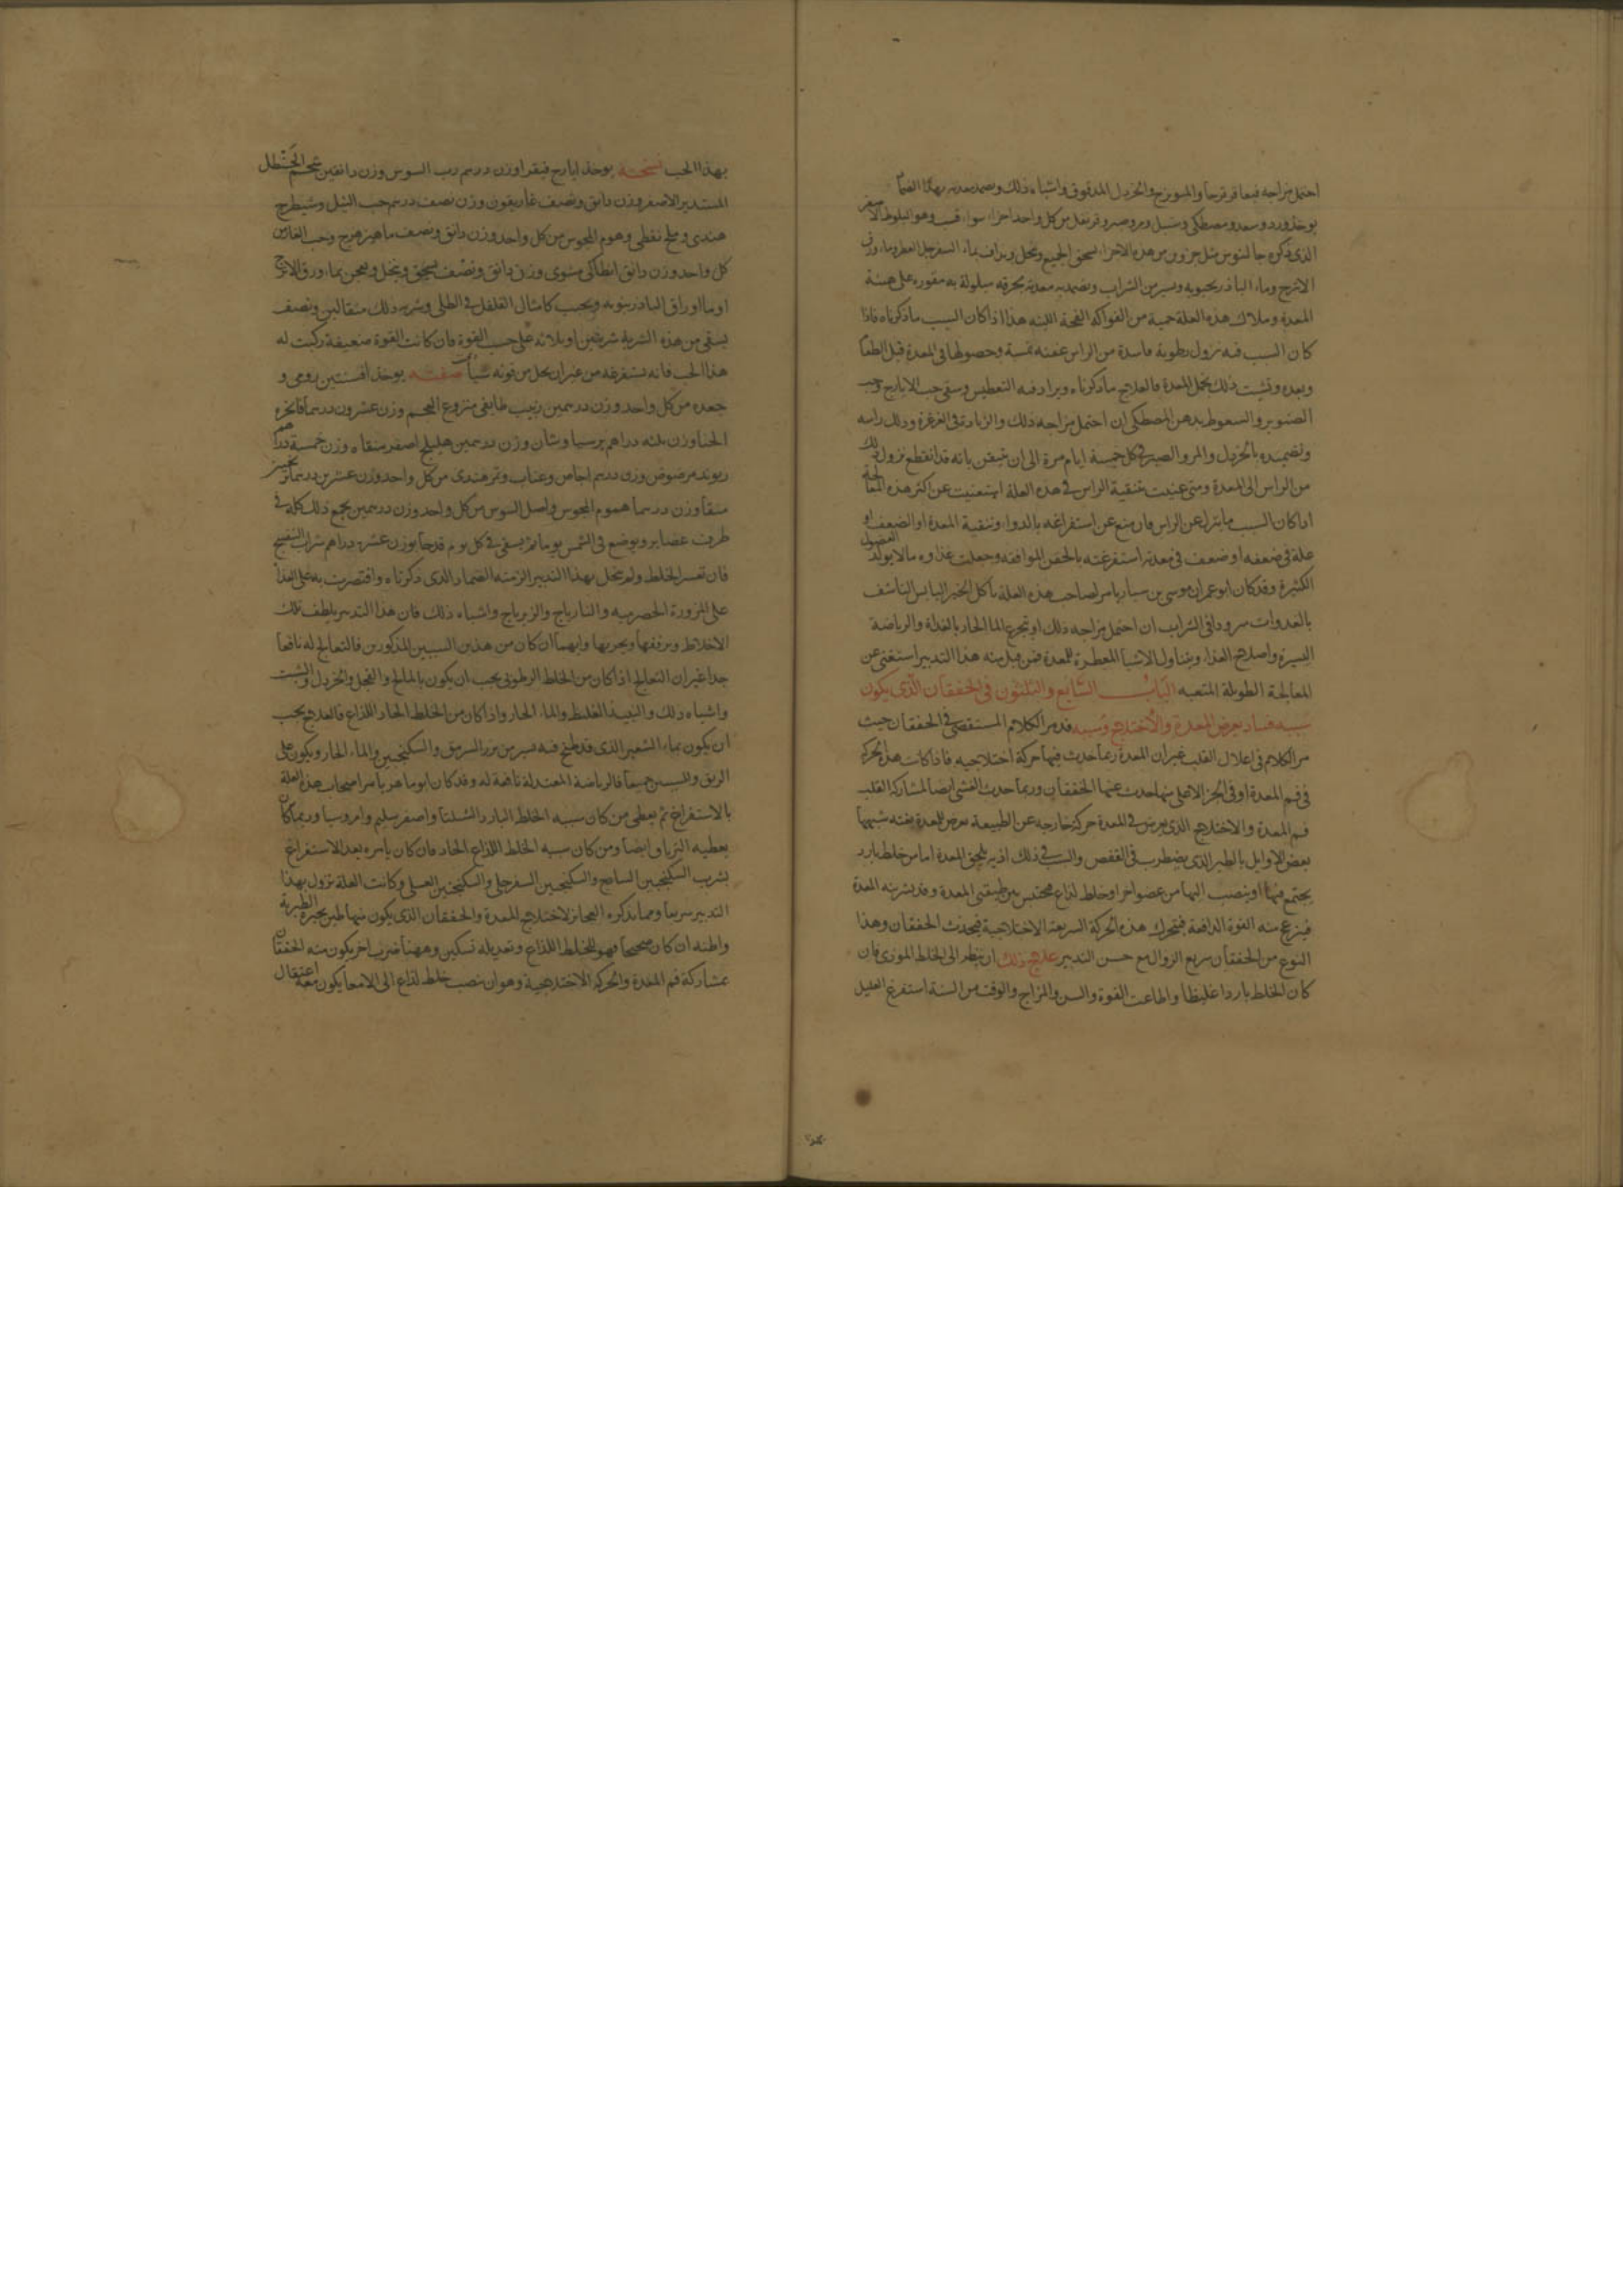 احتمل مزاجه فبعاقرقرحا والمويزج والخردل المدقوق واشباه ذلك ويضمد معدته بهذا الضماد
يوخذ ورد وسعد ومصطكى وسنبل ومر وصبر وقرنفل من كل واحد اجزاء سواء قسب وهو البلوط الاصفر
الذى ذكره جالينوس مثل جزوين من هذه الاجزاء يسحق الجميع وينخل ويداف بماء السفرجل العطر وماء ورق
الاترج وماء الباذرنجبويه ويسير من الشراب ويضمد به معدته بخرقة مبلولة به مقورة على هيئة
المعدة وملاك هذه العلة حمية من الفواكه الفجة اللينه هذا اذا كان السبب ما ذكرناه فاذا
كان السبب فيه نزول رطوبة فاسدة من الراس عفنه وحصولها فى المعدة قبل الطعام
وبعده وتشبث ذلك بخمل المعدة فالعلاج ما ذكرناه ويراد فيه التعطيس وسقى حب الايارج وحب
الصنوبر والسعوط بدهن المصطكى ان احتمل مزاجه ذلك والزيادة فى الغرغرة ودلك راسه
وتضميده بالخردل والمر والصبر فى كل خمسة ايام مرة الى ان تتيقن بانه قد انقطع نزول ذلك
من الراس الى المعدة ومتى عنيت بتنقية الراس فى هذه العلة استغنيت عن اكثر هذه المعالجة
اذا كان السبب ما ينزل عن الراس فان منع عن استفراغه بالدواء وتنقية المعدة او الضعف او
علة فى ضعفه او ضعف فى معدته استفرغته بالحقن الموافقه وجعلت غذاوه ما لا يولد الفضول
الكثيرة وقد كان ابو عمران موسى بن سيار يامر لصاحب هذه العلة باكل الخبز اليابس الناشف
بالغدوات مبرودا فى الشراب ان احتمل مزاجه ذلك او تجرع الما الحار بالغداة والرياضة
اليسيرة واصلاح الغذاء وتناول الاشيا المعطرة للمعدة فمن قبل منه هذا التدبير استغنى عن
المعالجة الطويلة المتعبه الباب السابع والثلثون فى الخفقان الذى يكون
سببه فساد يعرض للمعدة والاختلاج وسببه قد مر الكلام المستقصى فى الخفقان حيث
مر الكلام فى اعلال القلب غير ان المعدة ربما حدث فيها حركة اختلاجيه فاذا كانت هذه الحركة
فى فم المعدة او فى الجزء الاعلى منها حدث عنها الخفقان وربما حدث الغشى ايضا لمشاركة القلب
فم المعدة والاختلاج الذى يعرض فى المعدة حركة خارجه عن الطبيعة تعرض للمعدة بغته شبهها
بعض الاوايل بالطير الذى يضطرب فى القفص والسبب فى ذلك اذيه تلحق المعدة اما من خلط بارد
يجتمع فيها او ينصب اليها من عضو اخر او خلط لذاع محتبس بين طبقتى المعدة وقد تشربته المعدة
فينزعج منه القوة الدافعة فيتحرك هذه الحركة السريعة الاختلاجية فيحدث الخفقان وهذا
النوع من الخفقان سريع الزوال مع حسن التدبير علاج ذلك ان ينظر الى الخلط الموذى فان
كان الخلط باردا غليظا واطاعت القوة والسن والمزاج والوقت من السنة استفرغ العليل
بهذا الحب نسخته يوخذ ايارج فيقرا وزن درهم رب السوس وزن دانقين شحم الحنظل
المستدير الاصفر وزن دانق ونصف غاريقون وزن نصف درهم حب النيل وشيطرج
هندى وملح نفطى وهوم المجوس من كل واحد وزن دانق ونصف ماهيزهرج وحب الغار من
كل واحد وزن دانق انطاكى مشوى وزن دانق ونصف يسحق وينخل ويعجن بماء ورق الاترج
او ماء اوراق الباذرنبويه ويحبب كامثال الفلفل فى الظل وشربه ذلك مثقالين ونصف
يسقى من هذه الشربة شربتين او ثلاثه على حسب القوة فان كانت القوة ضعيفة ركبت له
هذا الحب فانه يستفرغه من غير ان يحل من قوته شيأ صفته يوخذ افسنتين رومى و
جعده من كل واحد وزن درهمين زبيب طايفى منزوع العجم وزن عشرون درهما فاغرة
الحنا وزن ثلثه دراهم برسياوشان وزن درهمين هليلج اصفر منقاه وزن خمسة دراهم
ريوند مرضوض وزن درهم اجاص وعناب وتمر هندى من كل واحد وزن عشرين درهما ترنجبين
منقا وزن درهما هوم المجوس واصل السوس من كل واحد وزن درهمين يجمع ذلك كله فى
ظرف غضاير ويوضع فى الشمس يوما ثم يسقى فى كل يوم قدحا بوزن عشره دراهم شراب البنفسج
فان تعسر الخلط ولم ينحل بهذا التدبير الزمته الضماد الذى ذكرناه واقتصرت به على الغذا
على المزورة الحصرميه والنارباج والزيرباج واشباه ذلك فان هذا التدبير يلطف تلك
الاخلاط ويرققها ويجريها وايهما ان كان من هذين السببين المذكورين فالتعالج له نافعا
جدا غير ان التعالج اذا كان من الخلط الرطوبى يجب ان يكون بالمالح والفجل والخردل والشبت
واشباه ذلك والنبيذ الغليظ والماء الحار واذا كان من الخلط الحار اللذاع فالعلاج يجب
ان يكون بماء الشعير الذى قد طبخ فيه يسير من بزر السرمق والسكنجبين والماء الحار ويكون على
الريق والسببين جميعا فالرياضة المعتدلة نافعة له وقد كان ابو ماهر يامر اصحاب هذه العلة
بالاستفراغ ثم يعطى من كان سببه الخلط البارد الشليثا واصفر سليم وامروسيا وربما كان
يعطيه الترياق ايضا ومن كان سببه الخلط اللذاع الحار فان كان يامره بعد الاستفراغ
بشرب السكنجبين الساذج والسكنجبين السفرجلى والسكنجبين العسلى وكانت العلة تزول بهذا
التدبير سريعا ومما يذكره العجايز لاختلاج المعدة والخفقان الذى يكون منها طين بحيرة الطبرية
واظنه ان كان صحيحا فهو للخلط اللذاع وتعديله تسكين وههنا ضرب اخر يكون منه الخفقان
بمشاركة فم المعدة والحركة الاختلاجية وهو ان ينصب خلط لذاع الى الامعا يكون معه اعتقال